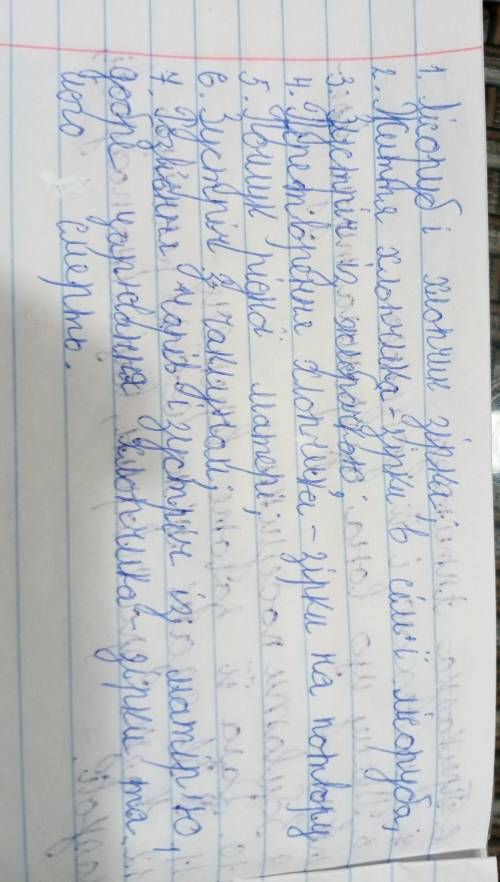 1. Лісоруб і хлопчик зірка,
2. Життя хлопчика-зірки в сім'ї лісоруба,
3. Зустріч із жебрачкою,
4. Перетворення хлопчика-зірки на потвору
5. Пошук рідної матері,
6. Зустріч з чаклуном,
7. Розвіяння чарів і зустріч із матір'ю,
добре царювання хлопчика-зірки та
його смерть.